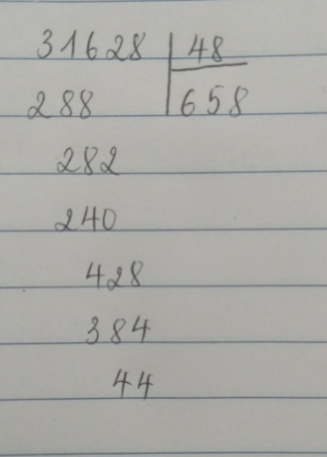 31628 | 48
288 | 658
282
240
428
384
44